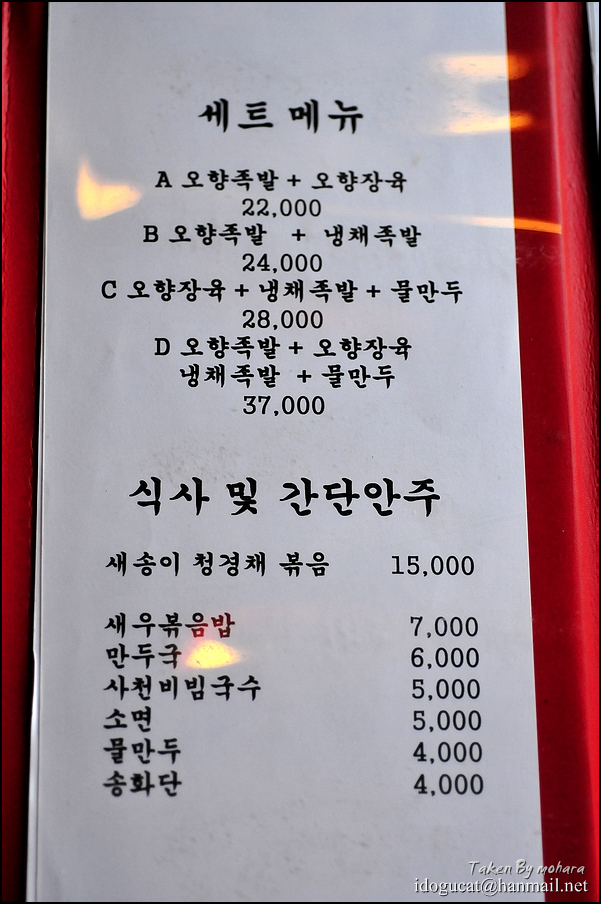 세트 메뉴
A 오향족발 + 오향장육
22,000
B 오향족발 + 냉채족발
24,000
C 오향장육 + 냉채족발 + 물만두
28,000
D 오향족발 + 오향장육
냉채족발 + 물만두
37,000
식사 및 간단안주
새송이 청경채 볶음 15,000
새우볶음밥 7,000
만두국 6,000
사천비빔국수 5,000
소면 5,000
물만두 4,000
송화단 4,000
Taken By mohara
idogucat@hanmail.net